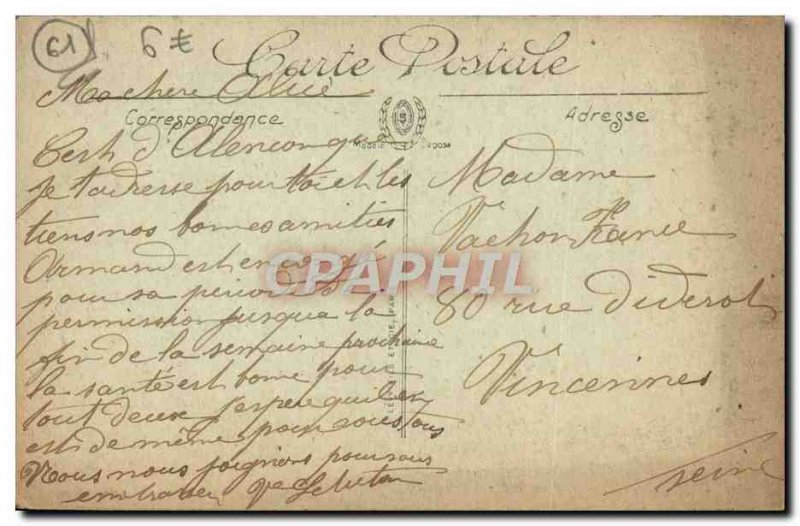 61 6 €
Carte Postale
Ma chere Alice
Correspondance
Adresse
Modèle Déposé
C'est d'Alençon que
je t'adresse pour toi et les
tiens nos bonnes amitiés
Armand est en congé
pour sa période
permission jusqu'a la
fin de la semaine prochaine
la santé est bonne pour
tout deux j'espère qu'il en
est de même pour vous tous
Nous nous joignons pour vous
embrasser
Madame
Vachon France
80 rue Diderot
Vincennes
Seine
CPAPHIL